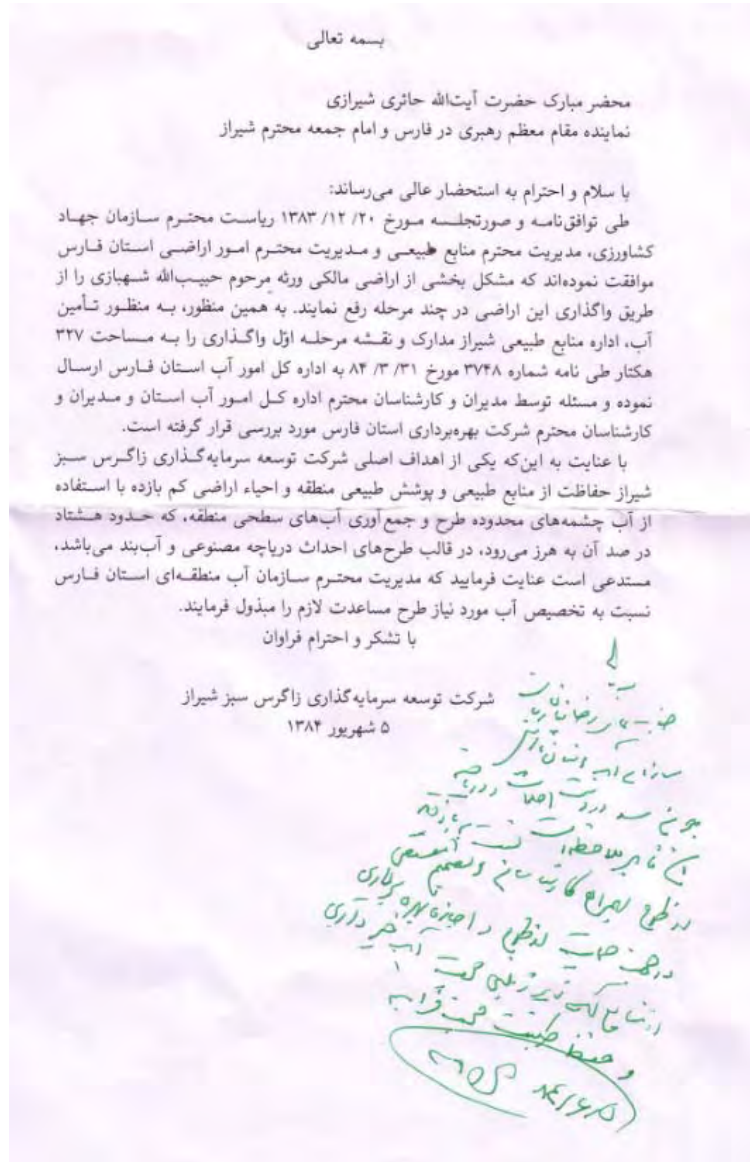 بسمه تعالی
محضر مبارک حضرت آیت‌الله حائری شیرازی
نماینده مقام معظم رهبری در فارس و امام جمعه محترم شیراز
با سلام و احترام به استحضار عالی می‌رساند:
طی توافق‌نامه و صورتجلسه مورخ ۲۰/ ۱۲/ ۱۳۸۳ ریاست محترم سازمان جهاد
کشاورزی، مدیریت محترم منابع طبیعی و مدیریت محترم امور اراضی استان فارس
موافقت نموده‌اند که مشکل بخشی از اراضی مالکی ورثه مرحوم حبیب‌الله شهبازی را از
طریق واگذاری این اراضی در چند مرحله رفع نمایند. به همین منظور، به منظور تأمین
آب، اداره منابع طبیعی شیراز مدارک و نقشه مرحله اوّل واگذاری را به مساحت ۳۲۷
هکتار طی نامه شماره ۳۷۴۸ مورخ ۳۱/ ۳/ ۸۴ به اداره کل امور آب استان فارس ارسال
نموده و مسئله توسط مدیران و کارشناسان محترم اداره کل امور آب استان و مدیران و
کارشناسان محترم شرکت بهره‌برداری استان فارس مورد بررسی قرار گرفته است.
با عنایت به این‌که یکی از اهداف اصلی شرکت توسعه سرمایه‌گذاری زاگرس سبز
شیراز حفاظت از منابع طبیعی و پوشش طبیعی منطقه و احیاء اراضی کم بازده با استفاده
از آب چشمه‌های محدوده طرح و جمع‌آوری آب‌های سطحی منطقه، که حدود هشتاد
در صد آن به هرز می‌رود، در قالب طرح‌های احداث دریاچه مصنوعی و آب‌بند می‌باشد،
مستدعی است عنایت فرمایید که مدیریت محترم سازمان آب منطقه‌ای استان فارس
نسبت به تخصیص آب مورد نیاز طرح مساعدت لازم را مبذول فرمایند.
با تشکر و احترام فراوان
شرکت توسعه سرمایه‌گذاری زاگرس سبز شیراز
۵ شهریور ۱۳۸۴